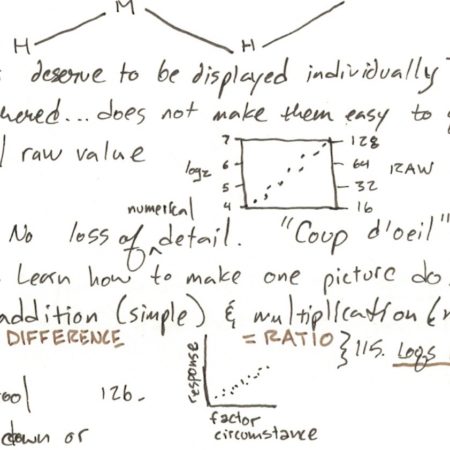 M
H H
deserve to be displayed individually
hered... does not make them easy to
raw value
7 128
log2 6 64 RAW
5 32
4 16
numerical
No loss of ^ detail. "Coup d'oeil"
Learn how to make one picture do
addition (simple) & multiplication (
DIFFERENCE = RATIO } 115. Logs
response
ool 126.
factor
down or circumstance